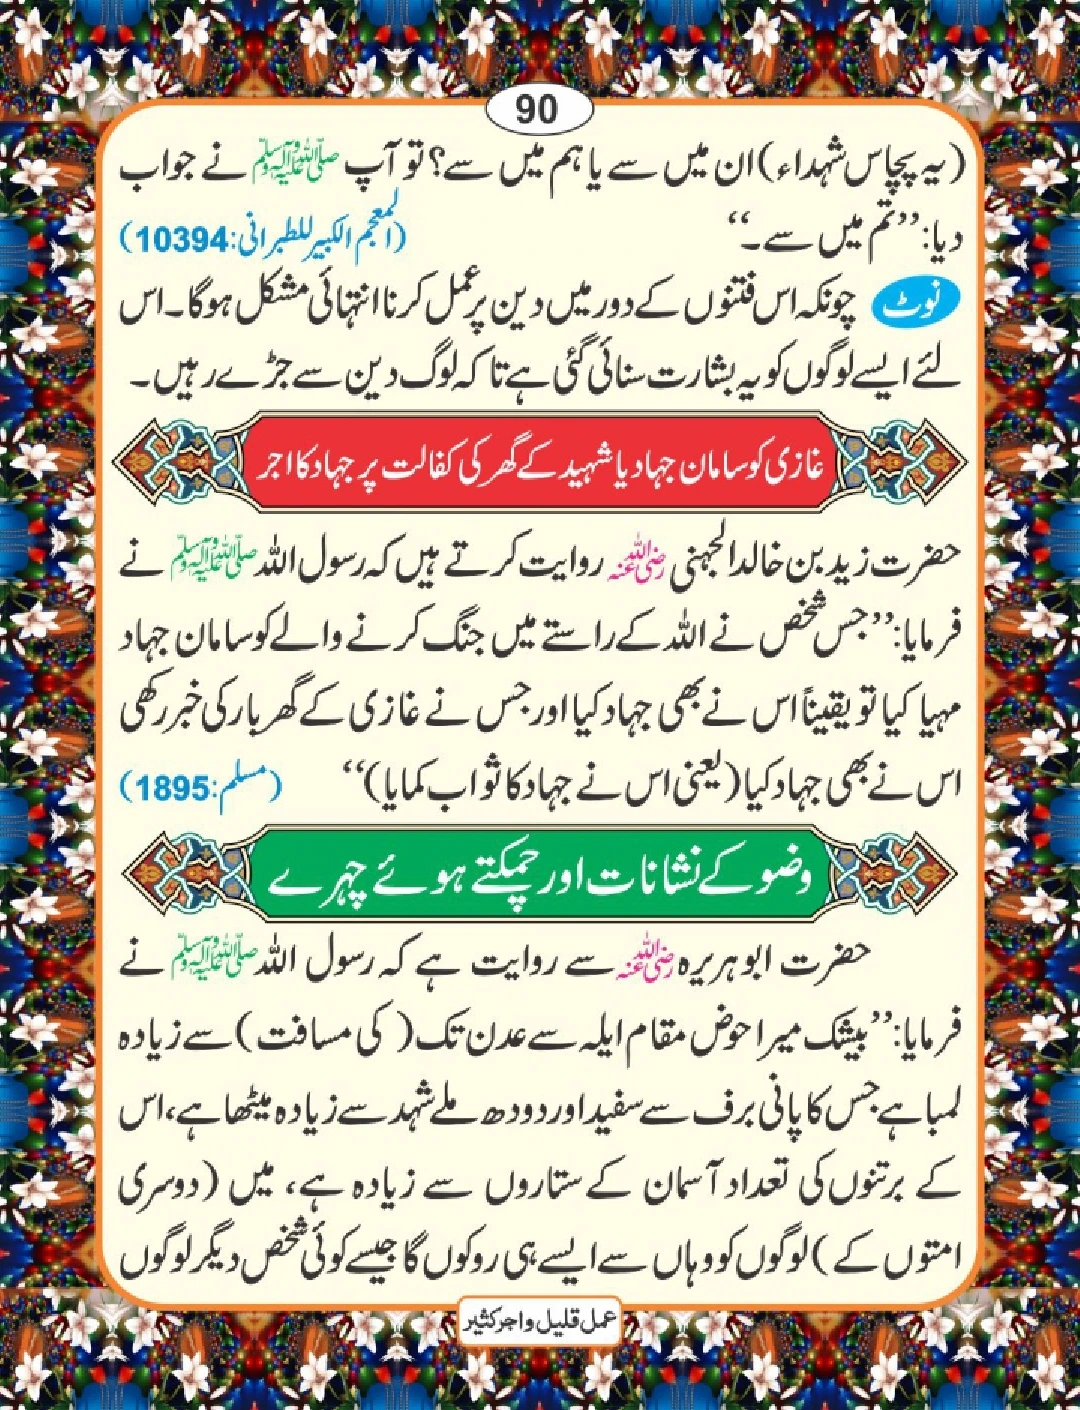 90
(یہ پچاس شہداء) ان میں سے یا ہم میں سے؟ تو آپ صلی اللہ علیہ وآلہ وسلم نے جواب
دیا: ’’تم میں سے۔‘‘ (المعجم الکبیر للطبرانی: 10394)
نوٹ چونکہ اس فتنوں کے دور میں دین پر عمل کرنا انتہائی مشکل ہوگا۔ اس
لئے ایسے لوگوں کو یہ بشارت سنائی گئی ہے تا کہ لوگ دین سے جڑے رہیں۔
غازی کو سامان جہاد یا شہید کے گھر کی کفالت پر جہاد کا اجر
حضرت زید بن خالد الجہنی رضی اللہ عنہ روایت کرتے ہیں کہ رسول اللہ صلی اللہ علیہ وآلہ وسلم نے
فرمایا: ’’جس شخص نے اللہ کے راستے میں جنگ کرنے والے کو سامان جہاد
مہیا کیا تو یقیناً اس نے بھی جہاد کیا اور جس نے غازی کے گھر بار کی خبر رکھی
اس نے بھی جہاد کیا (یعنی اس نے جہاد کا ثواب کمایا)‘‘ (مسلم: 1895)
وضو کے نشانات اور چمکتے ہوئے چہرے
حضرت ابو ہریرہ رضی اللہ عنہ سے روایت ہے کہ رسول اللہ صلی اللہ علیہ وآلہ وسلم نے
فرمایا: ’’بیشک میرا حوض مقام ایلہ سے عدن تک ( کی مسافت ) سے زیادہ
لمبا ہے جس کا پانی برف سے سفید اور دودھ ملے شہد سے زیادہ میٹھا ہے، اس
کے برتنوں کی تعداد آسمان کے ستاروں سے زیادہ ہے، میں (دوسری
امتوں کے) لوگوں کو وہاں سے ایسے ہی روکوں گا جیسے کوئی شخص دیگر لوگوں
عمل قلیل و اجر کثیر